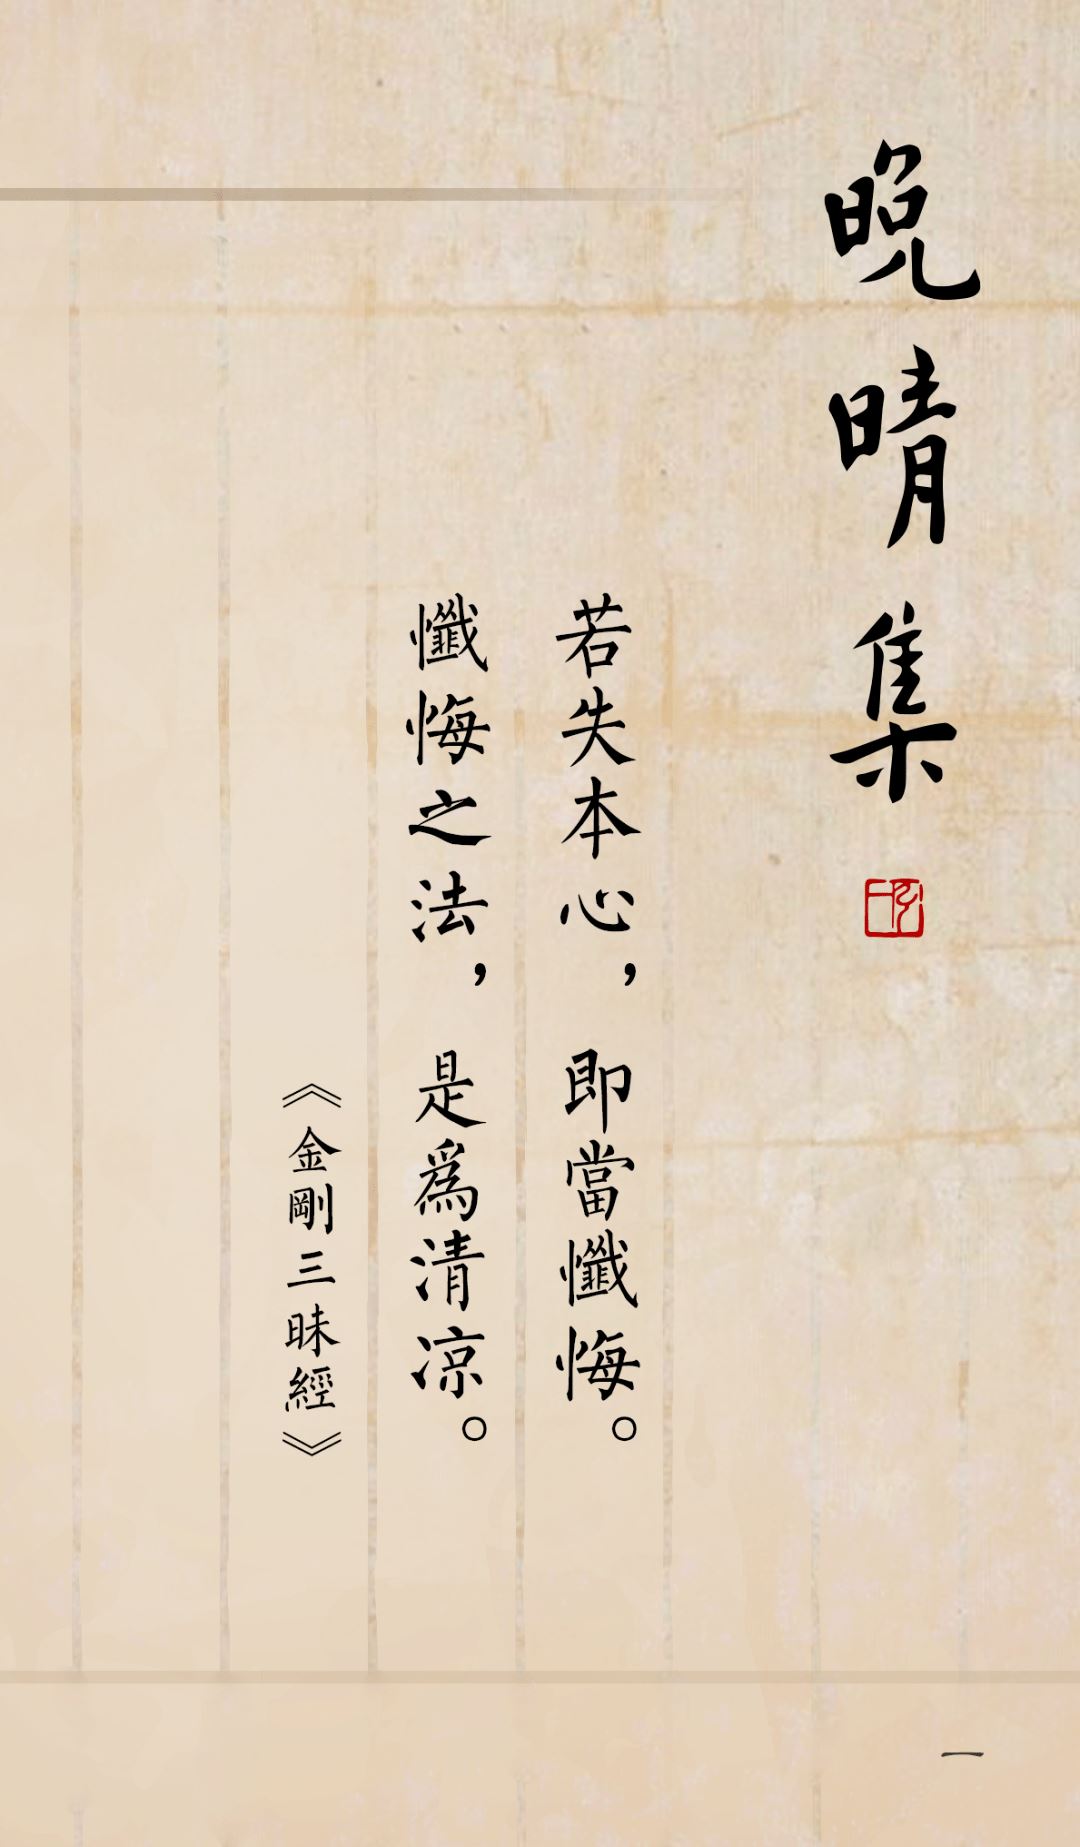 晚晴集
若失本心，即當懺悔。
懺悔之法，是爲清凉。
《金剛三昧經》
一